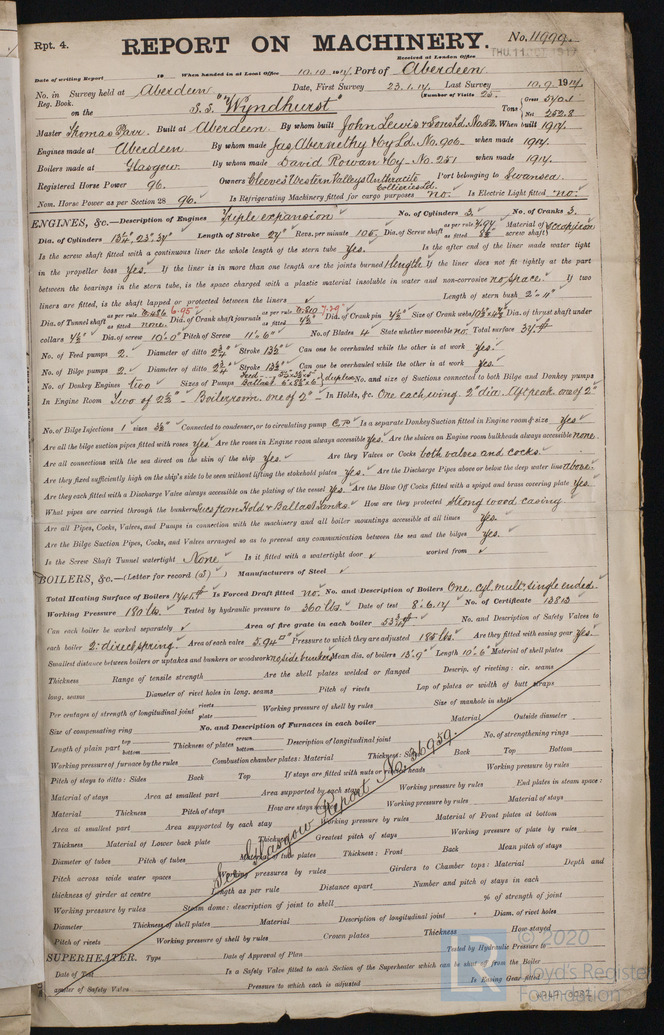 Rpt. 4.
REPORT ON MACHINERY.
No. 11999.
Received at London Office
THU. 11
Date of writing Report 19 When handed in at Local Office 10.10.1914 Port of Aberdeen
No. in Survey held at Aberdeen Date, First Survey 23.1.14 Last Survey 10.9.1914
Reg. Book. (Number of Visits 25.
on the S.S. "Wyndhurst" Tons Gross 540.1 Net 252.8
Master Thomas Parr. Built at Aberdeen. By whom built John Lewis & Sons Ld. No. 52. When built 1914.
Engines made at Aberdeen By whom made Jas Abernethy & Cy Ld. No. 906. when made 1914.
Boilers made at Glasgow. By whom made David Rowan & Cy - No. 251 when made 1914.
Registered Horse Power 96. Owners Cleeves Western Valleys Anthracite Collieries Ld. Port belonging to Swansea.
Nom. Horse Power as per Section 28 96. Is Refrigerating Machinery fitted for cargo purposes no. Is Electric Light fitted no.
ENGINES, &c.—Description of Engines Triple expansion No. of Cylinders 3. No. of Cranks 3.
Dia. of Cylinders Length of Stroke 24" Revs. per minute 105 Dia. of Screw shaft as per rule as fitted Material of screw shaft
Is the screw shaft fitted with a continuous liner the whole length of the stern tube Yes. Is the after end of the liner made water tight
in the propeller boss Yes. If the liner is in more than one length are the joints burned 1 length If the liner does not fit tightly at the part
between the bearings in the stern tube, is the space charged with a plastic material insoluble in water and non-corrosive no space. If two
liners are fitted, is the shaft lapped or protected between the liners ✓ Length of stern bush 2'-11"
Dia. of Tunnel shaft as per rule as fitted none. Dia. of Crank shaft journals as per rule as fitted Dia. of Crank pin 7½" Size of Crank webs Dia. of thrust shaft under
collars 7½" Dia. of screw 10'.0" Pitch of Screw 11'.6" No. of Blades 4 State whether moveable no. Total surface
No. of Feed pumps 2. Diameter of ditto 2¾" Stroke 13½" Can one be overhauled while the other is at work Yes.
No. of Bilge pumps 2. Diameter of ditto 2¾" Stroke 13½" Can one be overhauled while the other is at work Yes.
No. of Donkey Engines two Sizes of Pumps Feed Ballast duplex No. and size of Suctions connected to both Bilge and Donkey pumps
In Engine Room Two of 2½" - Boiler room, one of 2" - In Holds, &c. One each wing 2" dia. Aft peak one of 2"
No. of Bilge Injections 1 sizes 3½" Connected to condenser, or to circulating pump C.P. Is a separate Donkey Suction fitted in Engine room & size Yes
Are all the bilge suction pipes fitted with roses Yes. Are the roses in Engine room always accessible Yes. Are the sluices on Engine room bulkheads always accessible none.
Are all connections with the sea direct on the skin of the ship Yes. Are they Valves or Cocks both valves and cocks.
Are they fixed sufficiently high on the ship's side to be seen without lifting the stokehold plates Yes. Are the Discharge Pipes above or below the deep water line above.
Are they each fitted with a Discharge Valve always accessible on the plating of the vessel Yes. Are the Blow Off Cocks fitted with a spigot and brass covering plate Yes.
What pipes are carried through the bunkers Sucs from Hold & Ballast Tanks. How are they protected strong wood casing.
Are all Pipes, Cocks, Valves, and Pumps in connection with the machinery and all boiler mountings accessible at all times Yes.
Are the Bilge Suction Pipes, Cocks, and Valves arranged so as to prevent any communication between the sea and the bilges Yes.
Is the Screw Shaft Tunnel watertight None Is it fitted with a watertight door ✓ worked from ✓
BOILERS, &c.—(Letter for record (S)) Manufacturers of Steel
Total Heating Surface of Boilers Is Forced Draft fitted no. No. and Description of Boilers One. cyl. mult. single ended.
Working Pressure 180 lbs. Tested by hydraulic pressure to 360 lbs. Date of test 8.6.14 No. of Certificate 13813
Can each boiler be worked separately ✓ Area of fire grate in each boiler No. and Description of Safety Valves to
each boiler 2: direct spring. Area of each valve 5.94 □" Pressure to which they are adjusted 185 lbs Are they fitted with easing gear Yes.
Smallest distance between boilers or uptakes and bunkers or woodwork no side bunkers Mean dia. of boilers 13'.9" Length 10'.6" Material of shell plates
Thickness Range of tensile strength Are the shell plates welded or flanged Descrip. of riveting: cir. seams
long. seams Diameter of rivet holes in long. seams Pitch of rivets Lap of plates or width of butt straps
Per centages of strength of longitudinal joint rivets plate Working pressure of shell by rules Size of manhole in shell
Size of compensating ring No. and Description of Furnaces in each boiler Material Outside diameter
Length of plain part top bottom Thickness of plates crown bottom Description of longitudinal joint No. of strengthening rings
Working pressure of furnace by the rules Combustion chamber plates: Material Thickness: Sides Back Top Bottom
Pitch of stays to ditto: Sides Back Top If stays are fitted with nuts or riveted heads Working pressure by rules
Material of stays Area at smallest part Area supported by each stay Working pressure by rules End plates in steam space:
Material Thickness Pitch of stays How are stays secured Working pressure by rules Material of stays
Area at smallest part Area supported by each stay Working pressure by rules Material of Front plates at bottom
Thickness Material of Lower back plate Thickness Greatest pitch of stays Working pressure of plate by rules
Diameter of tubes Pitch of tubes Material of tube plates Thickness: Front Back Mean pitch of stays
Pitch across wide water spaces Working pressures by rules Girders to Chamber tops: Material Depth and
thickness of girder at centre Length as per rule Distance apart Number and pitch of stays in each
Working pressure by rules Steam dome: description of joint to shell % of strength of joint
Diameter Thickness of shell plates Material Description of longitudinal joint Diam. of rivet holes
Pitch of rivets Working pressure of shell by rules Crown plates Thickness How stayed
See Glasgow Report No. 36959.
SUPERHEATER. Type Date of Approval of Plan Tested by Hydraulic Pressure to
Date of Test Is a Safety Valve fitted to each Section of the Superheater which can be shut off from the Boiler
ameter of Safety Valve Pressure to which each is adjusted Is Easing Gear fitted
© 2020
Lloyd's Register
Foundation